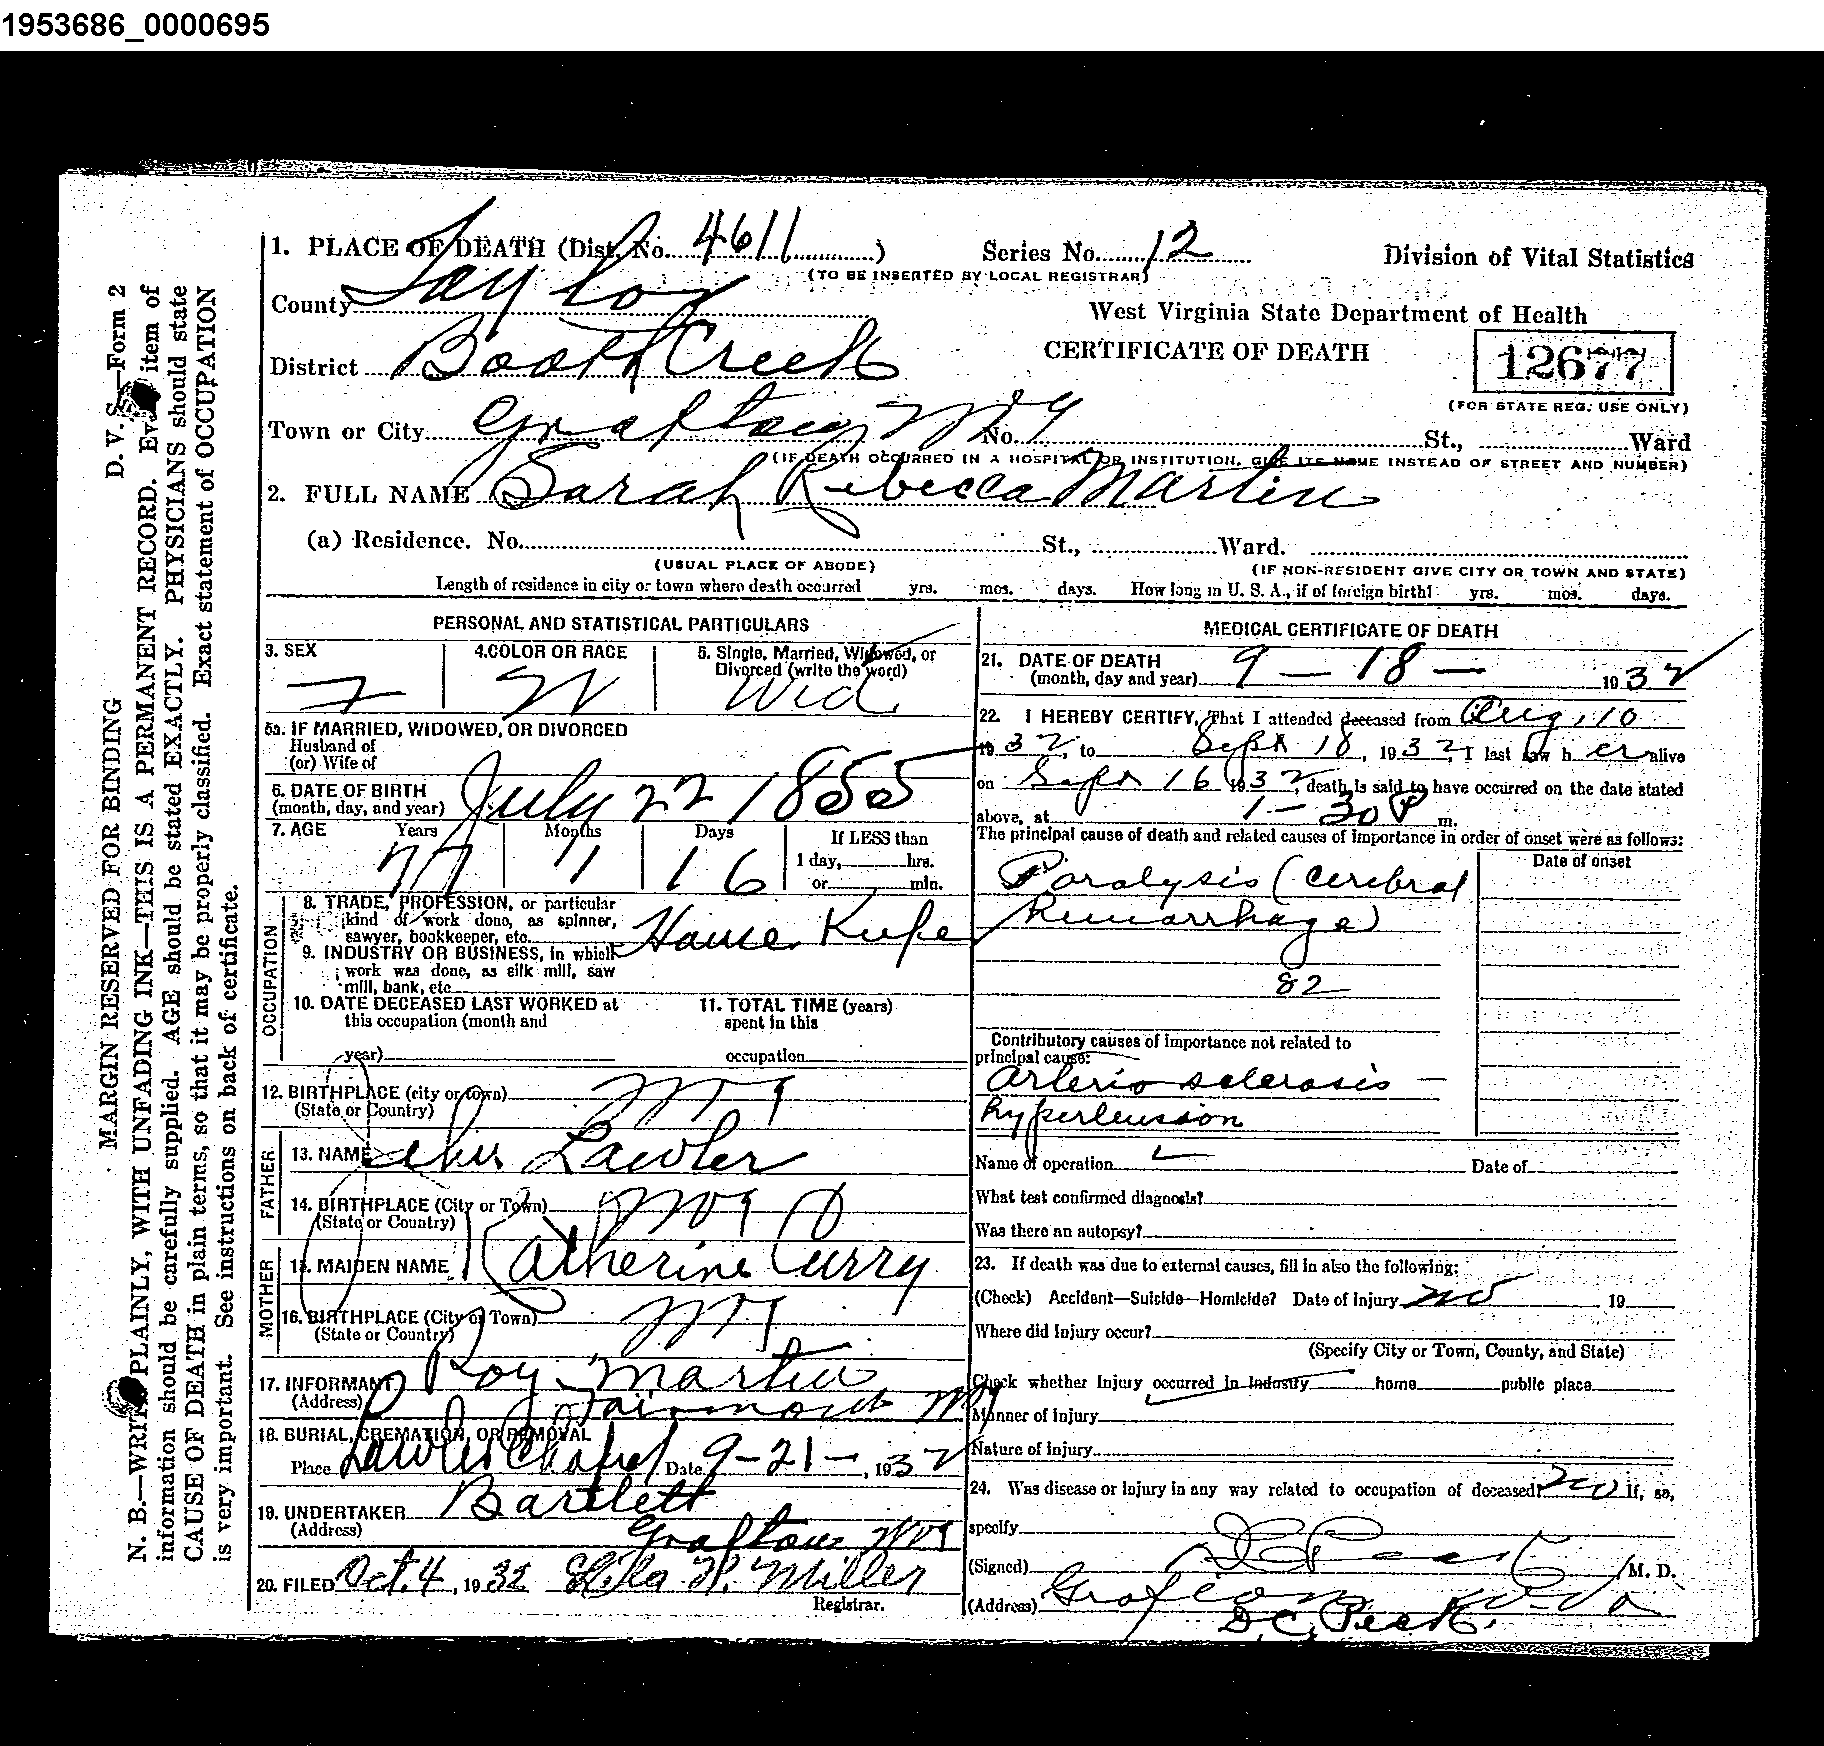 1953686_0000695
1. PLACE OF DEATH (Dist. No. 4611) Series No. 12 Division of Vital Statistics
(TO BE INSERTED BY LOCAL REGISTRAR)
County Taylor
West Virginia State Department of Health
District Booth Creek
CERTIFICATE OF DEATH
12677
(FOR STATE REG. USE ONLY)
Town or City Grafton W Va No. St., Ward
(IF DEATH OCCURRED IN A HOSPITAL OR INSTITUTION, GIVE ITS NAME INSTEAD OF STREET AND NUMBER)
2. FULL NAME Sarah Rebecca Martin
(a) Residence. No. St., Ward.
(USUAL PLACE OF ABODE) (IF NON-RESIDENT GIVE CITY OR TOWN AND STATE)
Length of residence in city or town where death occurred yrs. mos. days. How long in U. S. A., if of foreign birth? yrs. mos. days.
PERSONAL AND STATISTICAL PARTICULARS
3. SEX 4. COLOR OR RACE 5. Single, Married, Widowed, or
Divorced (write the word)
F W Wid
5a. IF MARRIED, WIDOWED, OR DIVORCED
Husband of
(or) Wife of
6. DATE OF BIRTH
(month, day, and year) July 22 1855
7. AGE Years Months Days If LESS than
77 1 16 1 day, hrs.
or min.
OCCUPATION
8. TRADE, PROFESSION, or particular
kind of work done, as spinner,
sawyer, bookkeeper, etc. House Keeper
9. INDUSTRY OR BUSINESS, in which
work was done, as silk mill, saw
mill, bank, etc
10. DATE DECEASED LAST WORKED at 11. TOTAL TIME (years)
this occupation (month and spent in this
year) occupation
12. BIRTHPLACE (city or town) W Va
(State or Country)
FATHER
13. NAME Lawler
14. BIRTHPLACE (City or Town) W Va
(State or Country)
MOTHER
15. MAIDEN NAME Katherine Curry
16. BIRTHPLACE (City or Town) W Va
(State or Country)
17. INFORMANT Roy Martin
(Address) Fairmont W Va
18. BURIAL, CREMATION, OR REMOVAL
Place Lawler Chapel Date 9-21-, 1932
19. UNDERTAKER Bartlett
(Address) Grafton W Va
20. FILED Oct. 4, 1932 Miller
Registrar.
MEDICAL CERTIFICATE OF DEATH
21. DATE OF DEATH
(month, day and year) 9 - 18 - 1932
22. I HEREBY CERTIFY, That I attended deceased from Aug, 10
1932, to Sept 18, 1932, I last saw h er alive
on Sept 16 1932, death is said to have occurred on the date stated
above, at 1-30 P m.
The principal cause of death and related causes of importance in order of onset were as follows:
Date of onset
Paralysis (cerebral
hemorrhage)
82
Contributory causes of importance not related to
principal cause:
Arterio sclerosis -
hypertension
Name of operation Date of
What test confirmed diagnosis?
Was there an autopsy?
23. If death was due to external causes, fill in also the following:
(Check) Accident—Suicide—Homicide? Date of injury no 19
Where did injury occur?
(Specify City or Town, County, and State)
Check whether injury occurred in industry home public place
Manner of injury
Nature of injury
24. Was disease or injury in any way related to occupation of deceased? no if, so,
specify
(Signed) D C Peck M. D.
(Address) Grafton W-Va
D.C. Peck.
D. V. S.—Form 2
MARGIN RESERVED FOR BINDING
N. B.—WRITE PLAINLY, WITH UNFADING INK—THIS IS A PERMANENT RECORD. Every item of
information should be carefully supplied. AGE should be stated EXACTLY. PHYSICIANS should state
CAUSE OF DEATH in plain terms, so that it may be properly classified. Exact statement of OCCUPATION
is very important. See instructions on back of certificate.